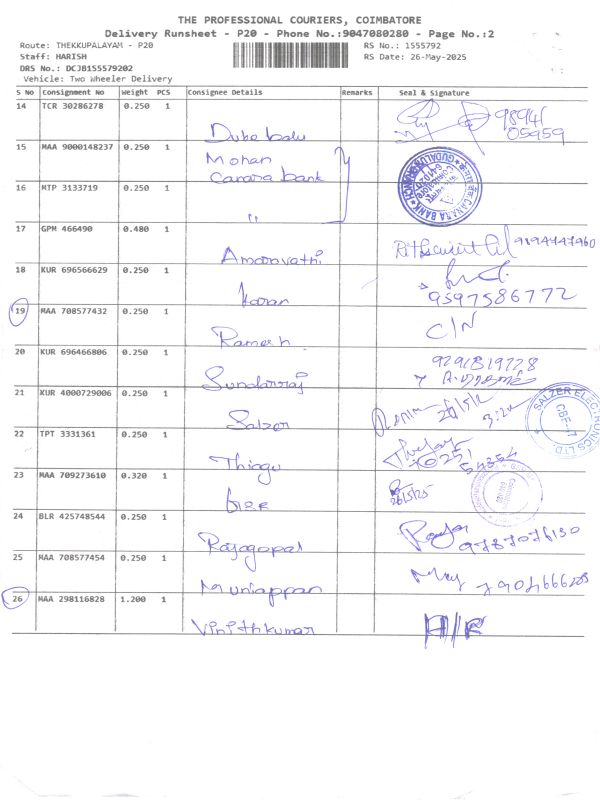 THE PROFESSIONAL COURIERS, COIMBATORE
Delivery Runsheet - P20 - Phone No.:9047080280 - Page No.:2
Route: THEKKUPALAYAM - P20 RS No.: 1555792
Staff: HARISH RS Date: 26-May-2025
DRS No.: DCJB15S579202
Vehicle: Two Wheeler Delivery
S No Consignment No Weight PCS Consignee Details Remarks Seal & Signature
14 TCR 30286278 0.250 1
Dube balu 98941 05959
15 MAA 9000148237 0.250 1 Mohan
Canara bank CANARA BANK
16 MTP 3133719 0.250 1
"
17 GPM 466490 0.480 1
Amaravathi
18 KUR 696566629 0.250 1
Karan 9597586772
19 MAA 708577432 0.250 1 C/N
Ramesh
20 KUR 696466806 0.250 1
Sundarraj
21 KUR 4000729006 0.250 1
Salzer SALZER ELECTRONICS LTD.
22 TPT 3331361 0.250 1
Thiagu
23 MAA 709273610 0.320 1 26/5/25
24 BLR 425748544 0.250 1
Rajagopal 9787076130
25 MAA 708577454 0.250 1
Muniappan
26 MAA 298116828 1.200 1
Vinithkumar